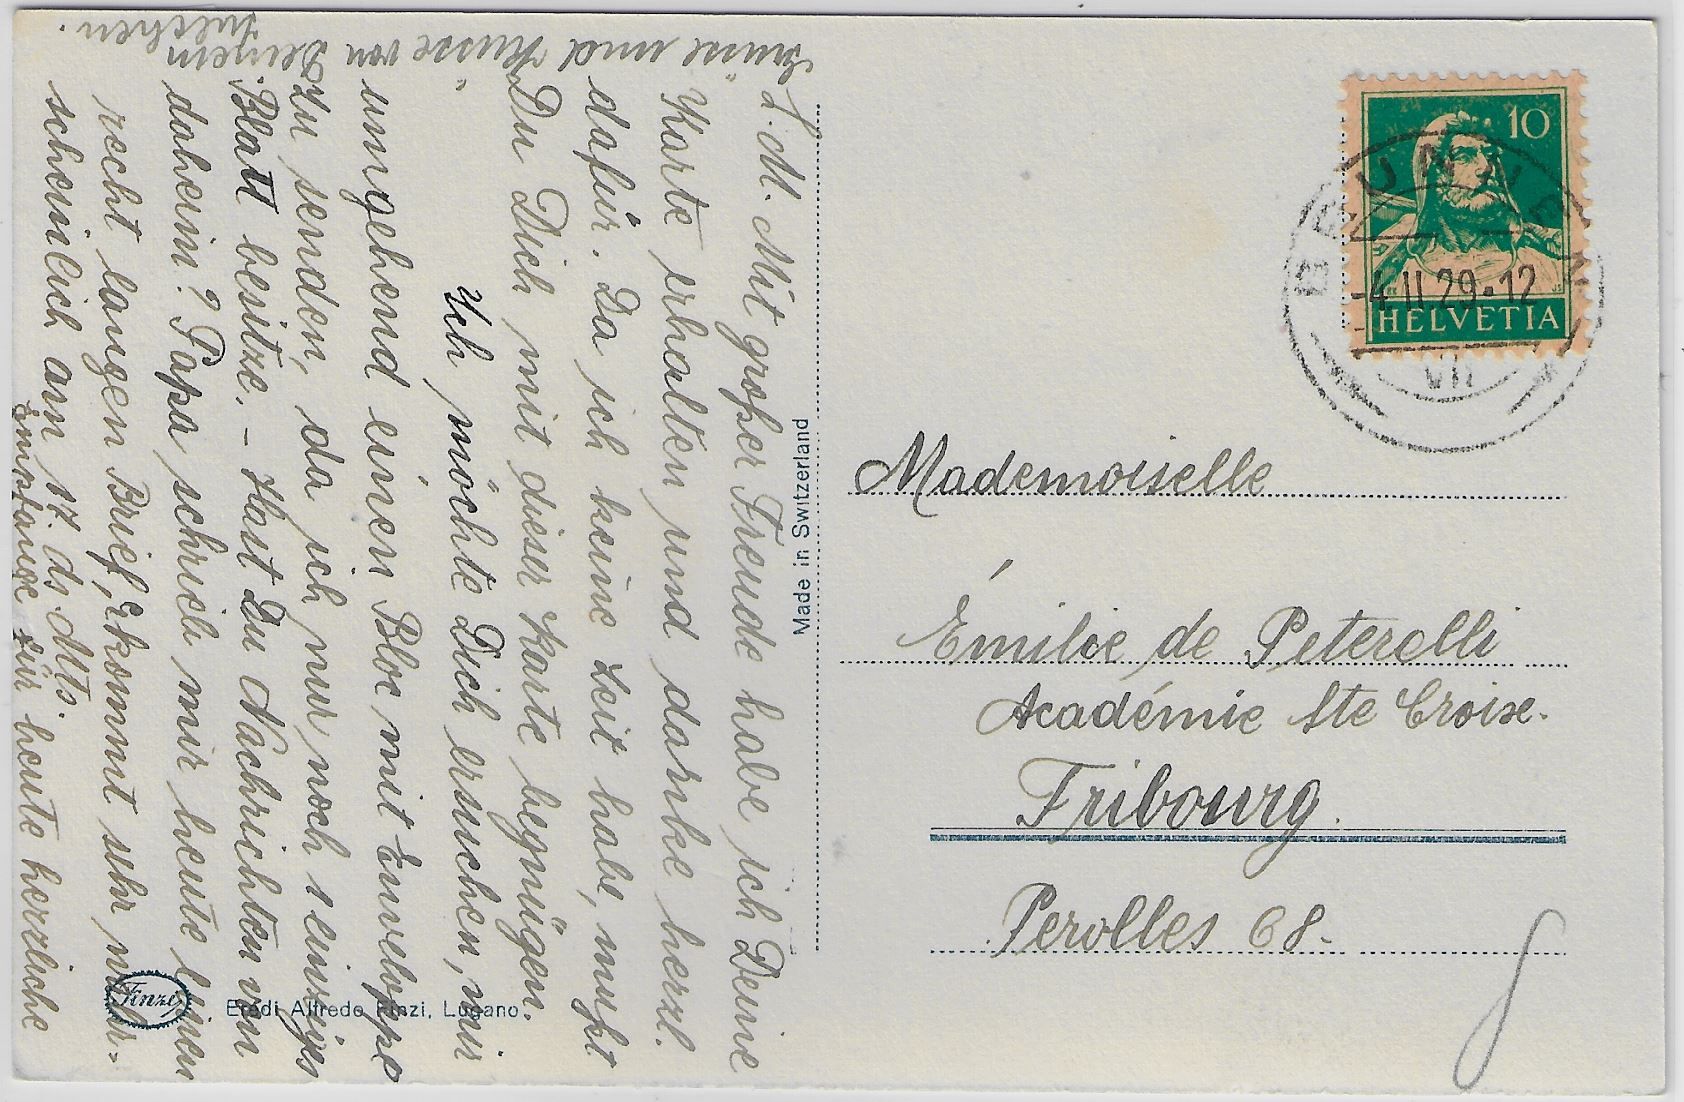 L. M. Mit großer Freude habe ich Deine
Karte erhalten und danke herzl.
dafür. Da ich keine Zeit habe, mußt
Du Dich mit dieser Karte begnügen.
Ich möchte Dich ersuchen, mir
umgehend einen Bloc mit Enveloppe
zu senden, da ich nur noch 1 einziges
Blatt besitze. – Hast Du Nachrichten von
daheim? Papa schrieb mir heute einen
recht langen Brief, Er kommt sehr wahr-
scheinlich am 17. ds Mts.
Empfange für heute herzliche
Grüsse und Küsse von Deinem
Made in Switzerland
Finzi
Eredi Alfredo Finzi, Lugano.
10
HELVETIA
BRUNNEN
-4. II. 29.-12
VII
Mademoiselle
Émilie de Peterelli
Académie Ste Croix.
Fribourg.
Perolles 68.